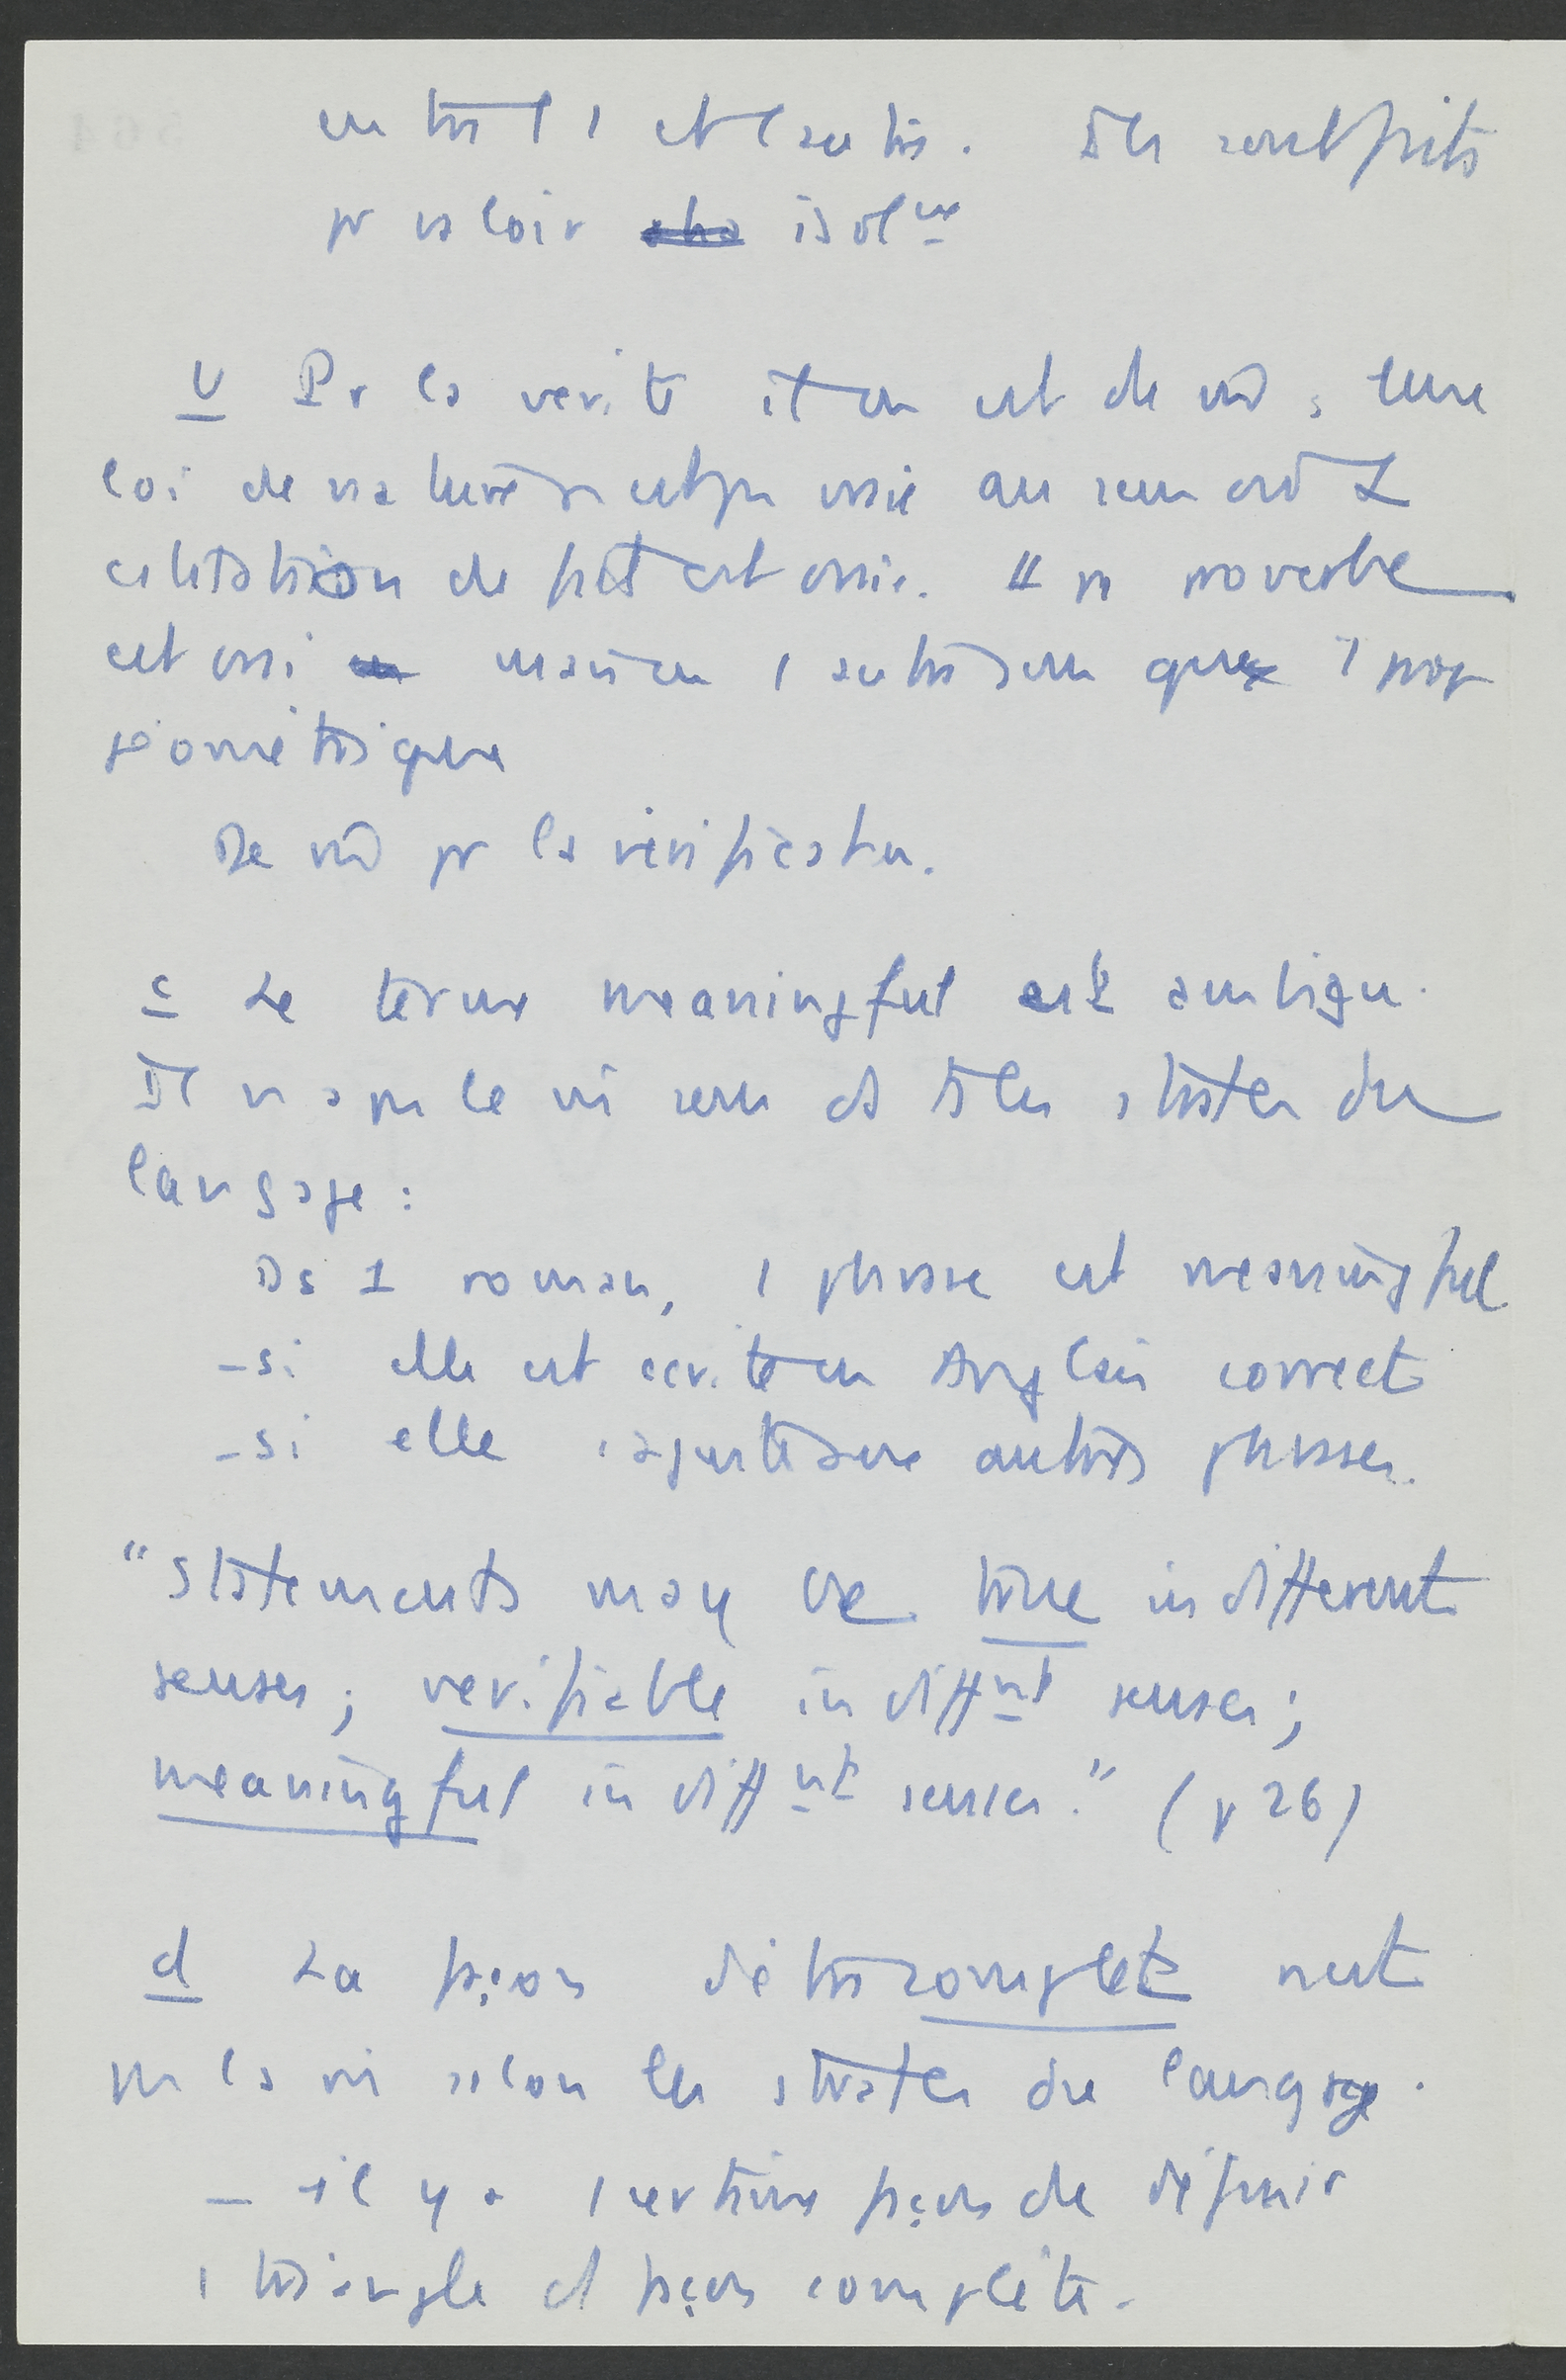 entre l 1 et l autre. Elles sont faites
pr valoir isolmt
b Pr la verite il en est de m : une
loi de nature n est pas vraie au sens où 1
constatation de fait est vraie. Un proverbe
est vrai en 1 autre sens que 1 prop
géométrique
De m pr la vérification.
c Le terme meaningful est ambigu.
Il n a pas le m sens ds ts les strates du
langage :
Ds 1 roman, 1 phrase est meaningful
- si elle est écrite en Anglais correct
- si elle s ajuste aux autres phrases.
"Statements may be true in different
senses; verifiable in diffnt senses;
meaningful in diffnt senses." (p 26)
d La façon d être complet n est
pas la m selon les strates du langage.
- il y a 1 certaine façon de définir
1 triangle d façon complète.